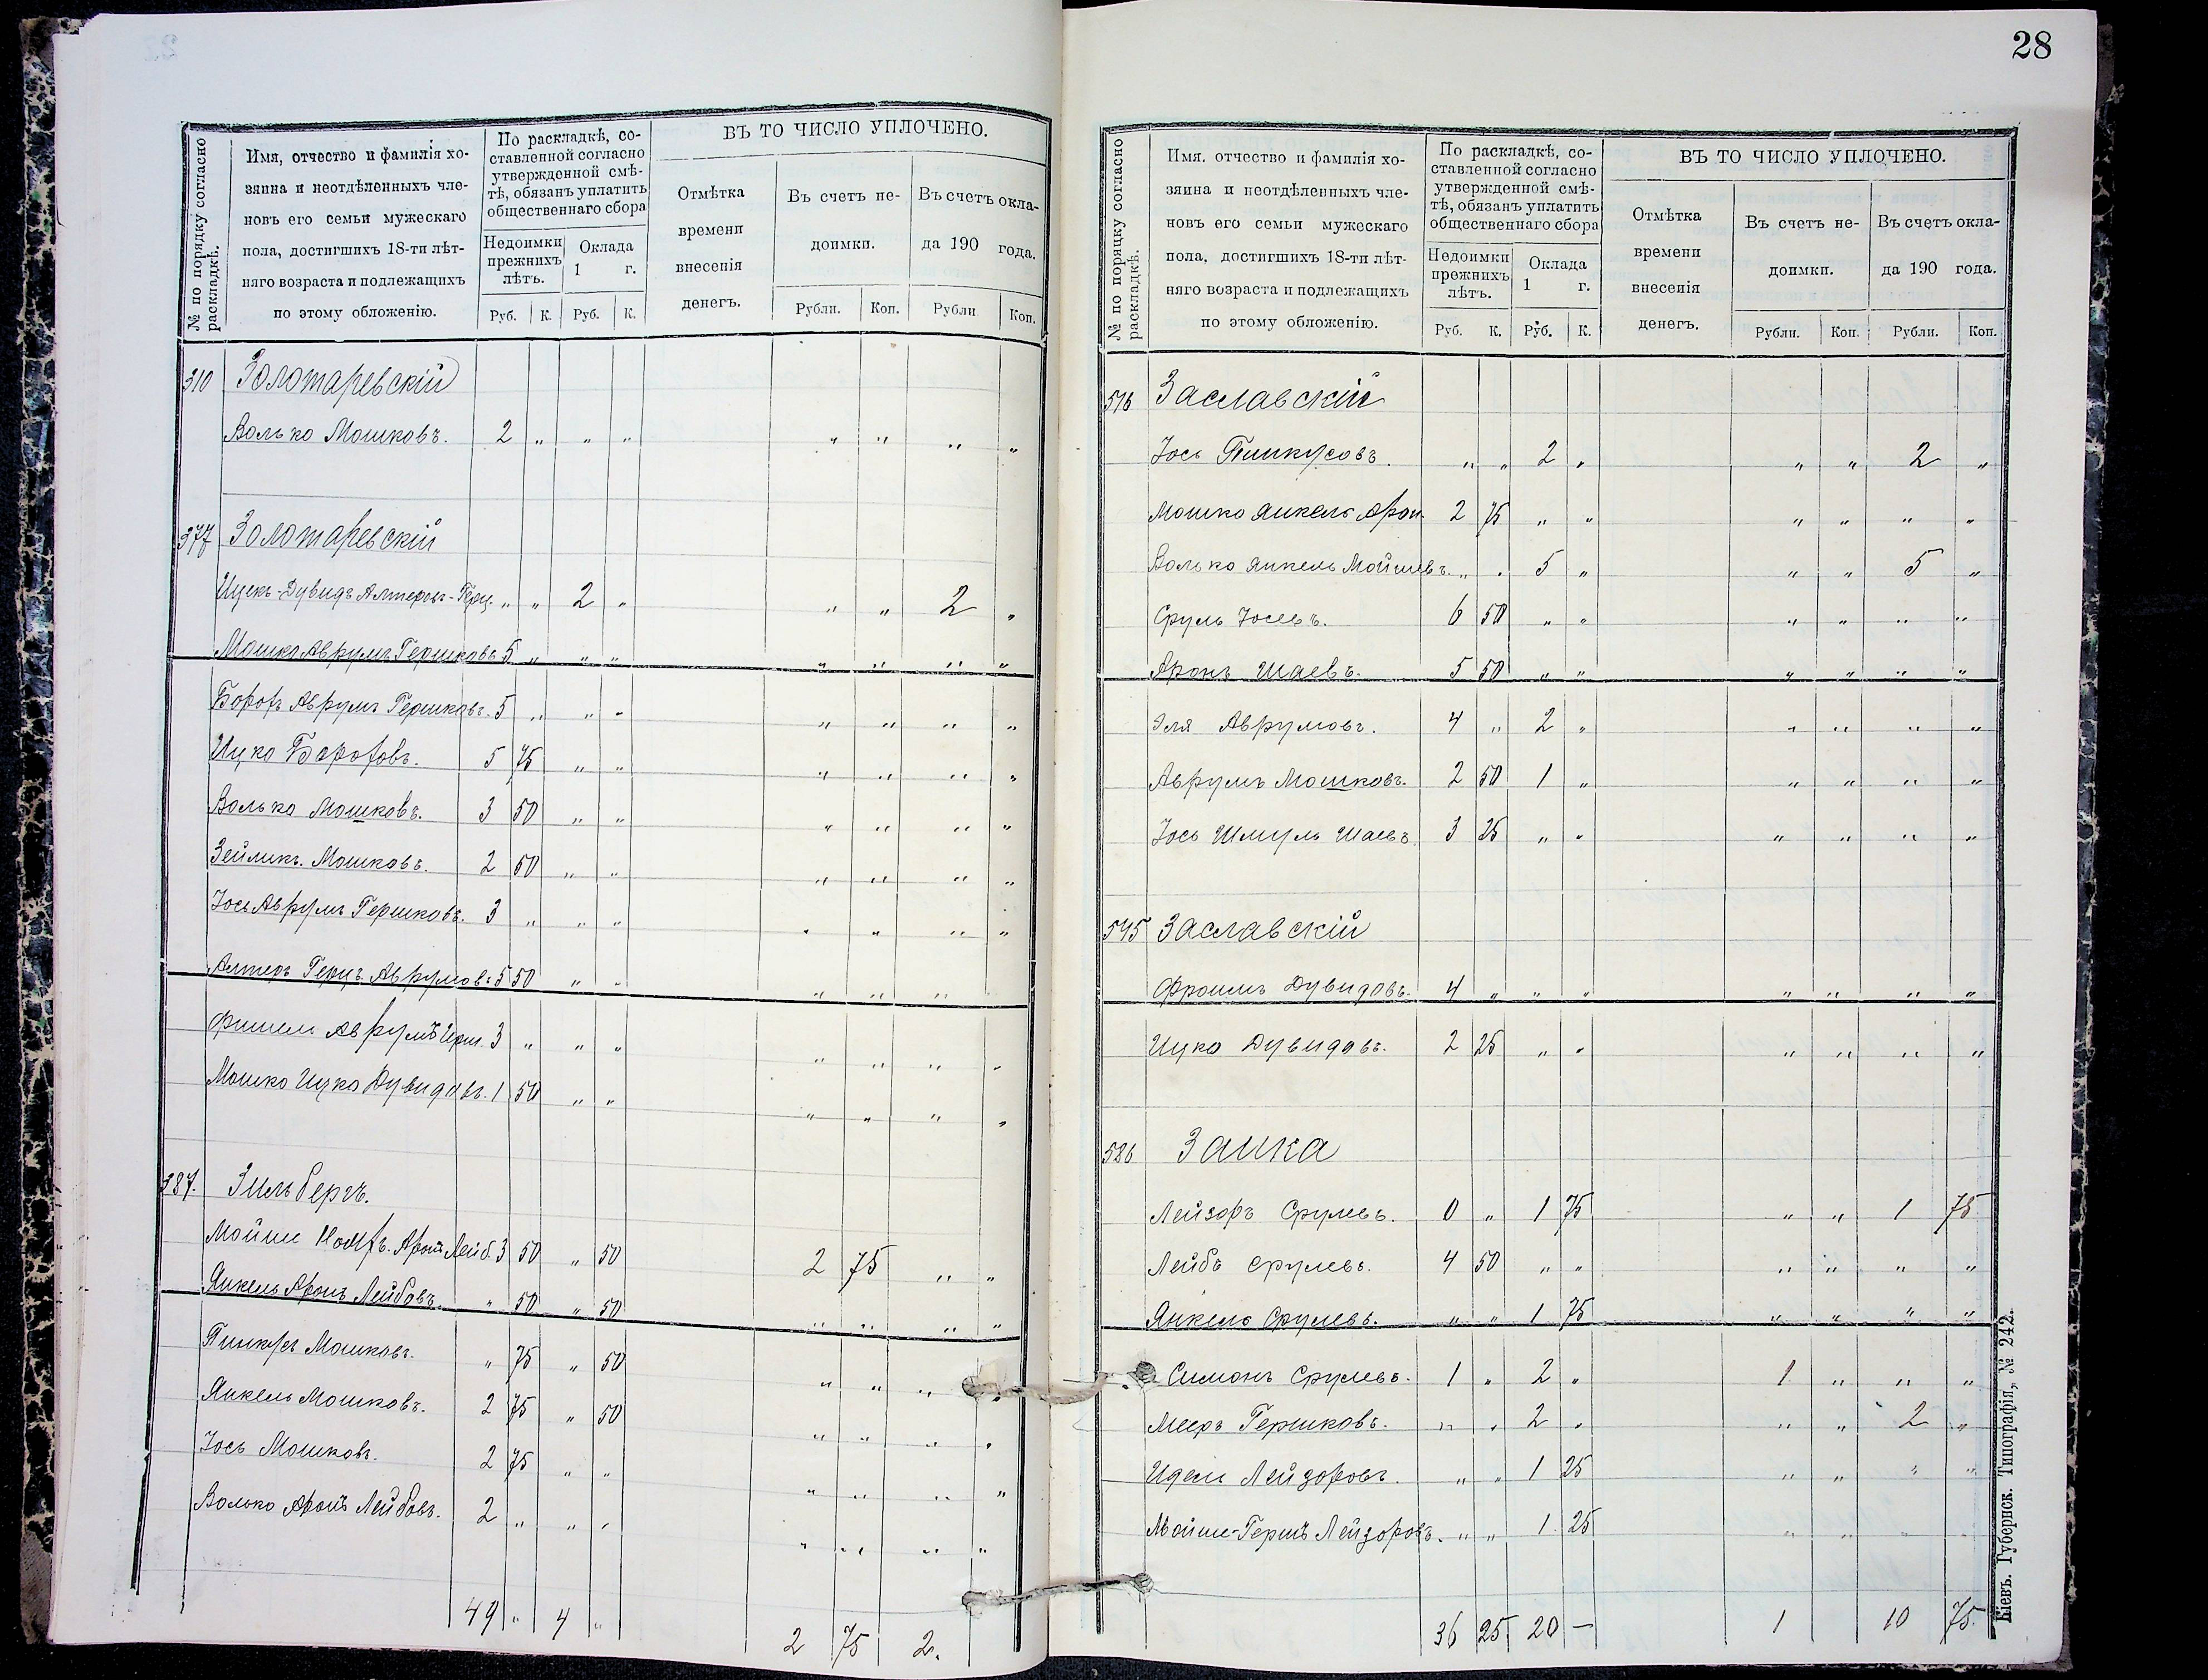 28
№ по порядку согласно раскладкѣ.
Имя, отчество и фамилія хо-
зяина и неотдѣленныхъ чле-
новъ его семьи мужескаго
пола, достигшихъ 18-ти лѣт-
няго возраста и подлежащихъ
по этому обложенію.
По раскладкѣ, со-
ставленной согласно
утвержденной смѣ-
тѣ, обязанъ уплатить
общественнаго сбора
Недоимки
прежнихъ
лѣтъ.
Оклада
1 г.
Руб. К. Руб. К.
ВЪ ТО ЧИСЛО УПЛОЧЕНО.
Отмѣтка
времени
внесенія
денегъ.
Въ счетъ не-
доимки.
Въ счетъ окла-
да 190 года.
Рубли. Коп. Рубли Коп.
310 Золотаревскій
Волько Мошковъ. 2 " " " " " " "
377 Золотаревскій
Ицекъ-Дувидъ Алтеръ-Герц. " " 2 " " " 2 "
Мошко Аврумъ Гершковъ 5 " " " " " " "
Борохъ Аврумъ Гершковъ. 5 " " " " " " "
Ицко Бороховъ. 5 75 " " " " " "
Волько Мошковъ. 3 50 " " " " " "
Зейликъ Мошковъ. 2 50 " " " " " "
Іось Аврумъ Гершковъ. 3 " " " " " " "
Алтеръ Герцъ Аврумовъ 5 50 " " " " "
Фишель Аврумъ 3 " " " " " " "
Мошко Ицко Дувидовъ. 1 50 " " " " " "
387. Зильбергъ.
Мойше Арон Лейб. 3 50 " 50 2 75 " "
Янкель Аронъ Лейбовъ. " 50 " 50 " " " "
Пинкусъ Мошковъ. " 75 " 50 " " " "
Янкель Мошковъ. 2 75 " 50 " " " "
Іось Мошковъ. 2 75 " " " " " "
Волько Аронъ Лейбовъ. 2 " " " " " " "
49 " 4 " 2 75 2.
№ по порядку согласно раскладкѣ.
Имя, отчество и фамилія хо-
зяина и неотдѣленныхъ чле-
новъ его семьи мужескаго
пола, достигшихъ 18-ти лѣт-
няго возраста и подлежащихъ
по этому обложенію.
По раскладкѣ, со-
ставленной согласно
утвержденной смѣ-
тѣ, обязанъ уплатить
общественнаго сбора
Недоимки
прежнихъ
лѣтъ.
Оклада
1 г.
Руб. К. Руб. К.
ВЪ ТО ЧИСЛО УПЛОЧЕНО.
Отмѣтка
времени
внесенія
денегъ.
Въ счетъ не-
доимки.
Въ счетъ окла-
да 190 года.
Рубли. Коп. Рубли. Коп.
516 Заславскій
Іось Пинкусовъ. " " 2 " " " 2 "
Мошко Янкель Арон. 2 75 " " " " " "
Волько Янкель Мойшевъ. " " 5 " " " 5 "
Сруль Іосевъ. 6 50 " " " " " "
Аронъ Шаевъ. 5 50 " " " " " "
Эля Аврумовъ. 4 " 2 " " " " "
Аврумъ Мошковъ. 2 50 1 " " " " "
Іось Шмуль Шаевъ. 3 25 " " " " " "
545 Заславскій
Фроимъ Дувидовъ. 4 " " " " " " "
Ицко Дувидовъ. 2 25 " " " " " "
586 Заика
Лейзоръ Срулевъ. 0 " 1 75 " " 1 75
Лейбъ Срулевъ. 4 50 " " " " " "
Янкель Срулевъ. " " 1 75 " " " "
Симонъ Срулевъ. 1 " 2 " 1 " " "
Мееръ Гершковъ. " " 2 " " " 2 "
Идель Лейзоровъ. " " 1 25 " " " "
Мойше-Гершъ Лейзоровъ. " " 1 25 " " " "
36 25. 20 — 1 10 75.
Кіевъ. Губернск. Типографія, № 242.